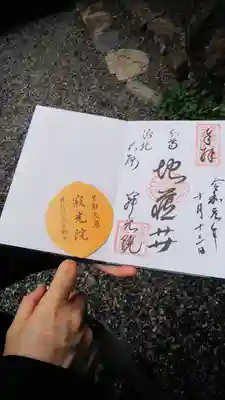 奉拝
令和元年
十月十三日
本尊
地蔵廾
洛北
大原
寂光院
京都大原
寂光院